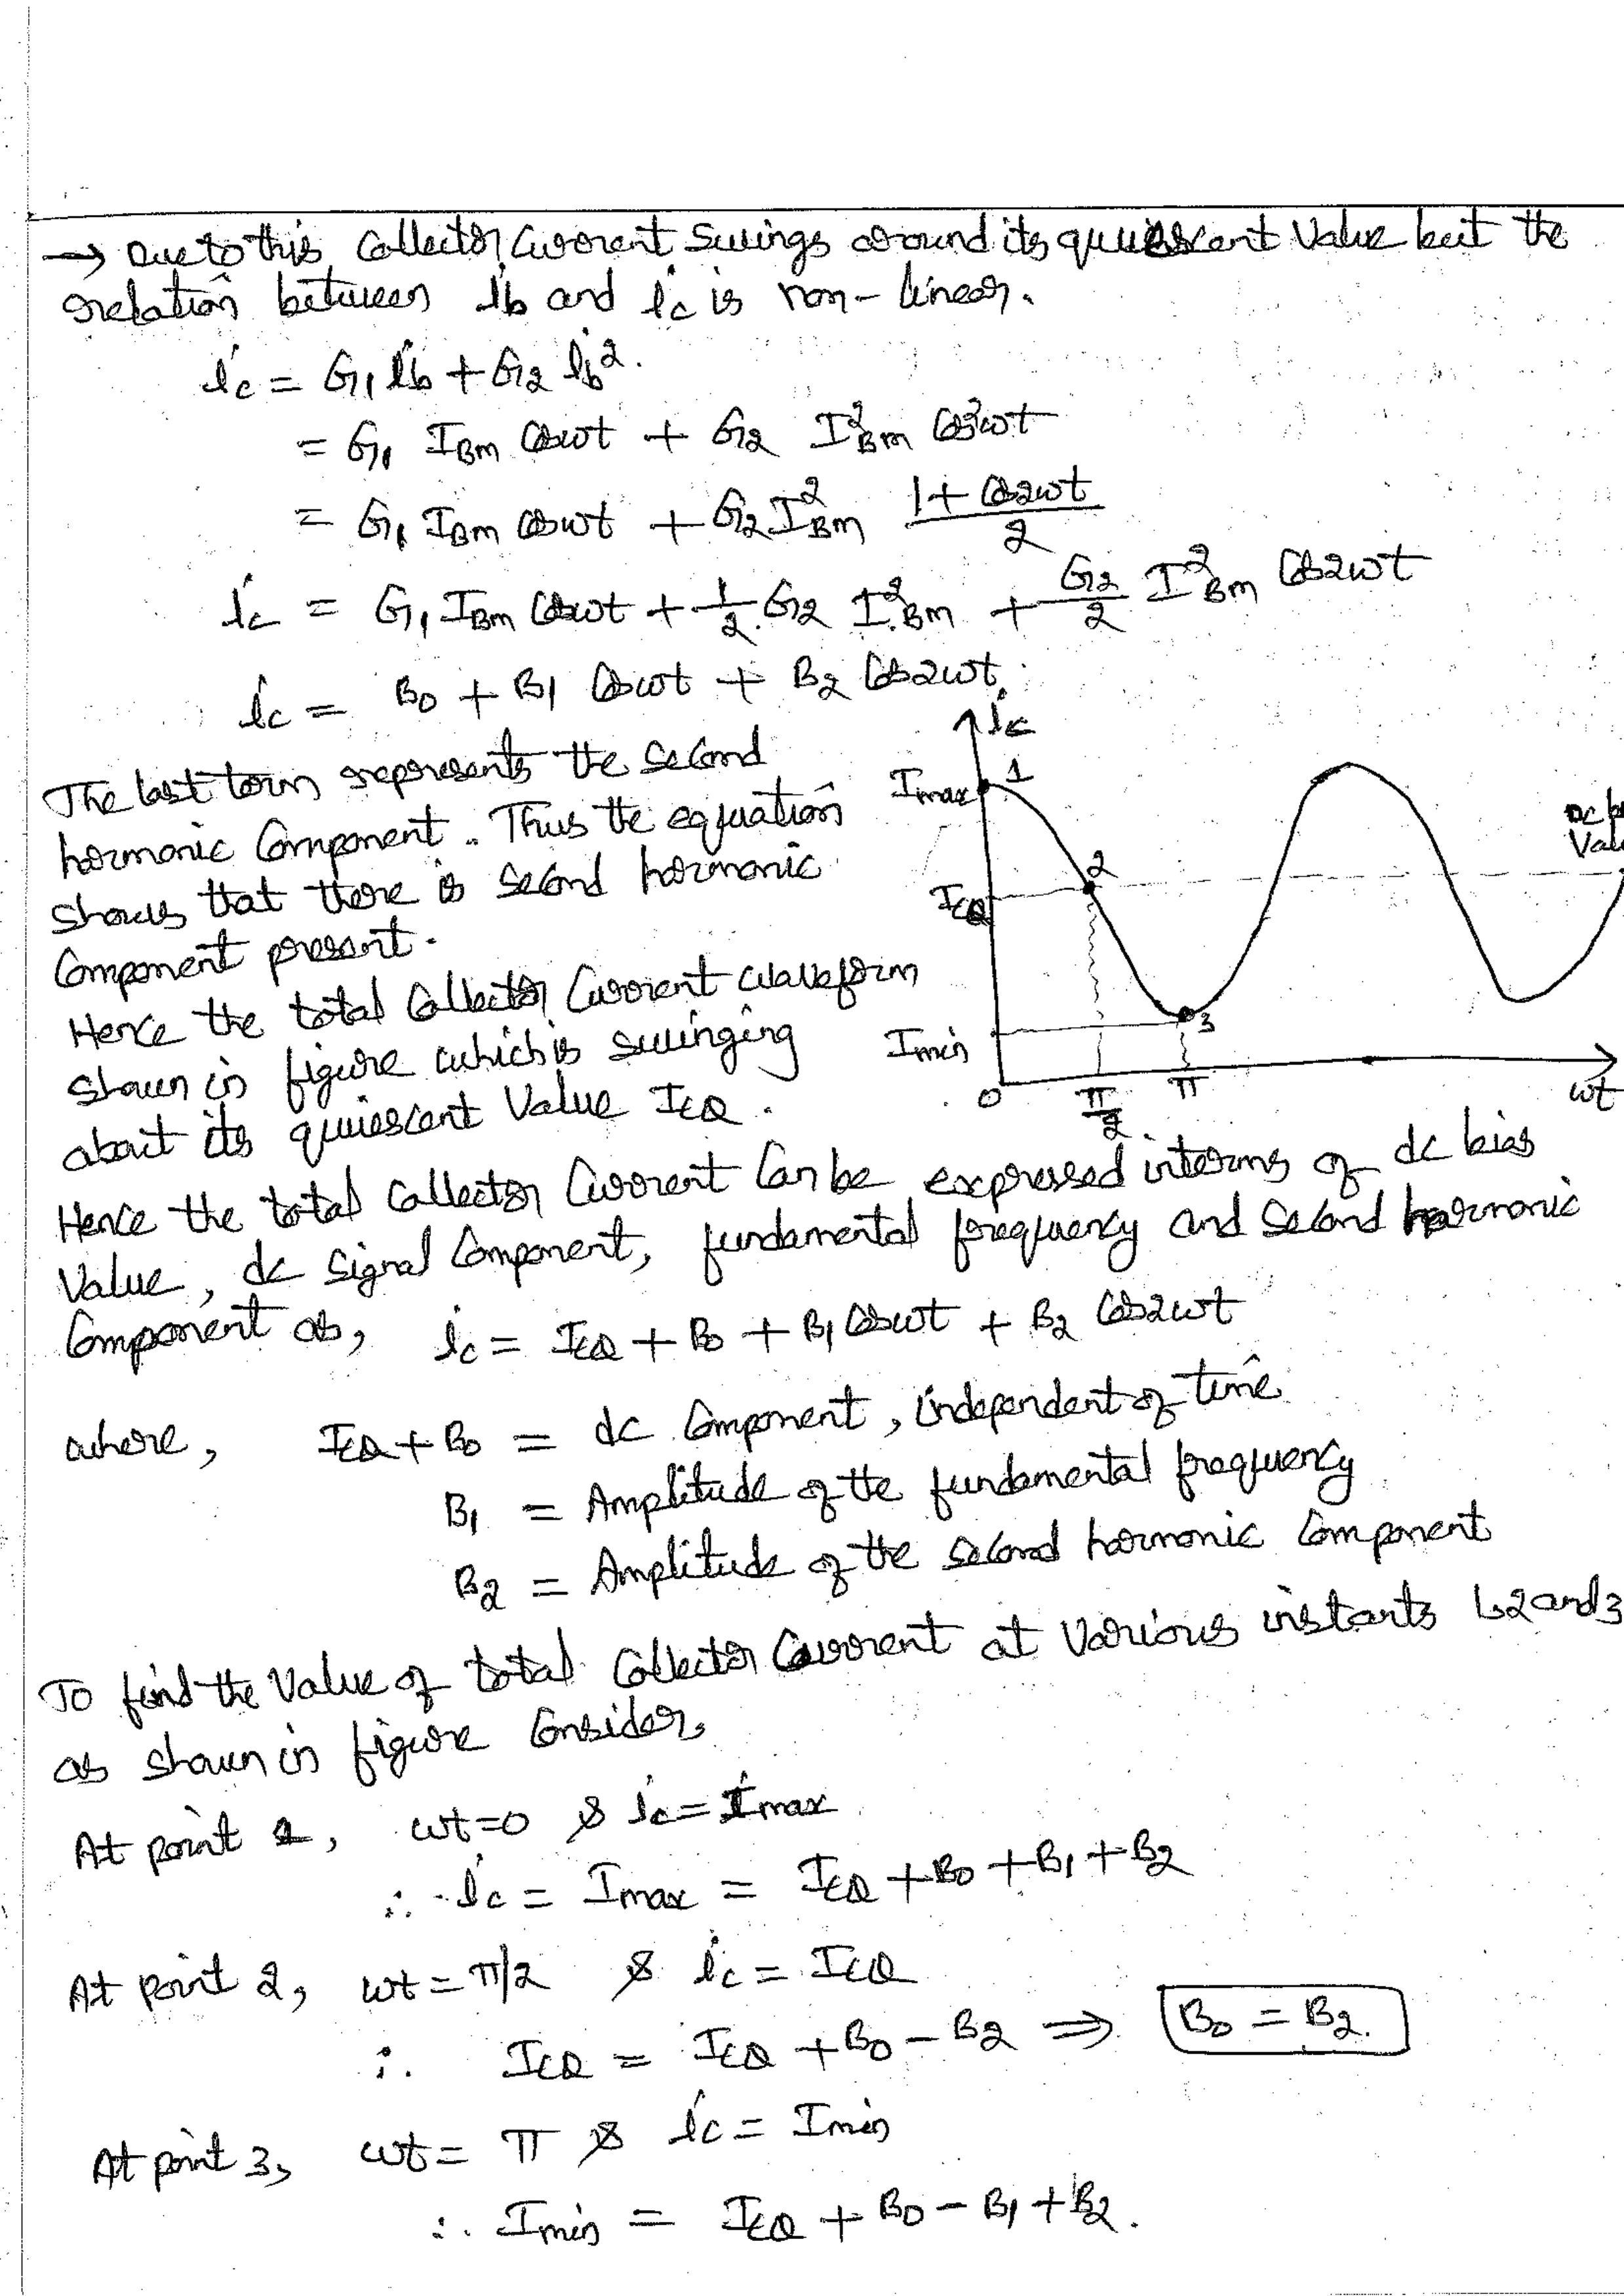 → Due to this Collector Current Swings around its quiescent Value but the
relation between ib and ic is non-linear.
ic = G1 ib + G2 ib².
= G1 IBm Cosωt + G2 I²Bm Cos²ωt
= G1 IBm Cosωt + G2 I²Bm (1 + Cos2ωt)/2
ic = G1 IBm Cosωt + 1/2 G2 I²Bm + G2/2 I²Bm Cos2ωt
ic = B0 + B1 Cosωt + B2 Cos2ωt.
The last term represents the second
harmonic Component. Thus the equation
shows that there is second harmonic
Component present.
Hence the total Collector Current waveform
shown in figure which is swinging
about its quiescent Value ICQ.
ic
Imax 1
2
ICQ
Imin
3
0
π/2
π
ωt
Hence the total Collector Current Can be expressed interms of dc bias
Value, dc Signal Component, fundamental frequency and Second harmonic
Component as, ic = ICQ + B0 + B1 Cosωt + B2 Cos2ωt
where, ICQ + B0 = dc Component, independent of time
B1 = Amplitude of the fundamental frequency
B2 = Amplitude of the second harmonic Component
To find the Value of total Collector Current at Various instants 1,2 and 3
as shown in figure Consider,
At point 1, ωt=0 & ic = Imax
∴ ic = Imax = ICQ + B0 + B1 + B2
At point 2, ωt = π/2 & ic = ICQ
∴ ICQ = ICQ + B0 - B2 ⇒ B0 = B2.
At point 3, ωt = π & ic = Imin
∴ Imin = ICQ + B0 - B1 + B2.